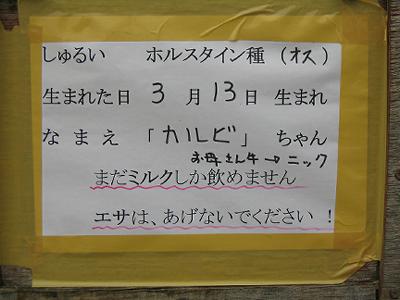 しゅるい ホルスタイン種(オス)
生まれた日 3 月 13日 生まれ
なまえ 「カルビ」 ちゃん
お母さん牛→ニック
まだミルクしか飲めません
エサは、あげないでください!